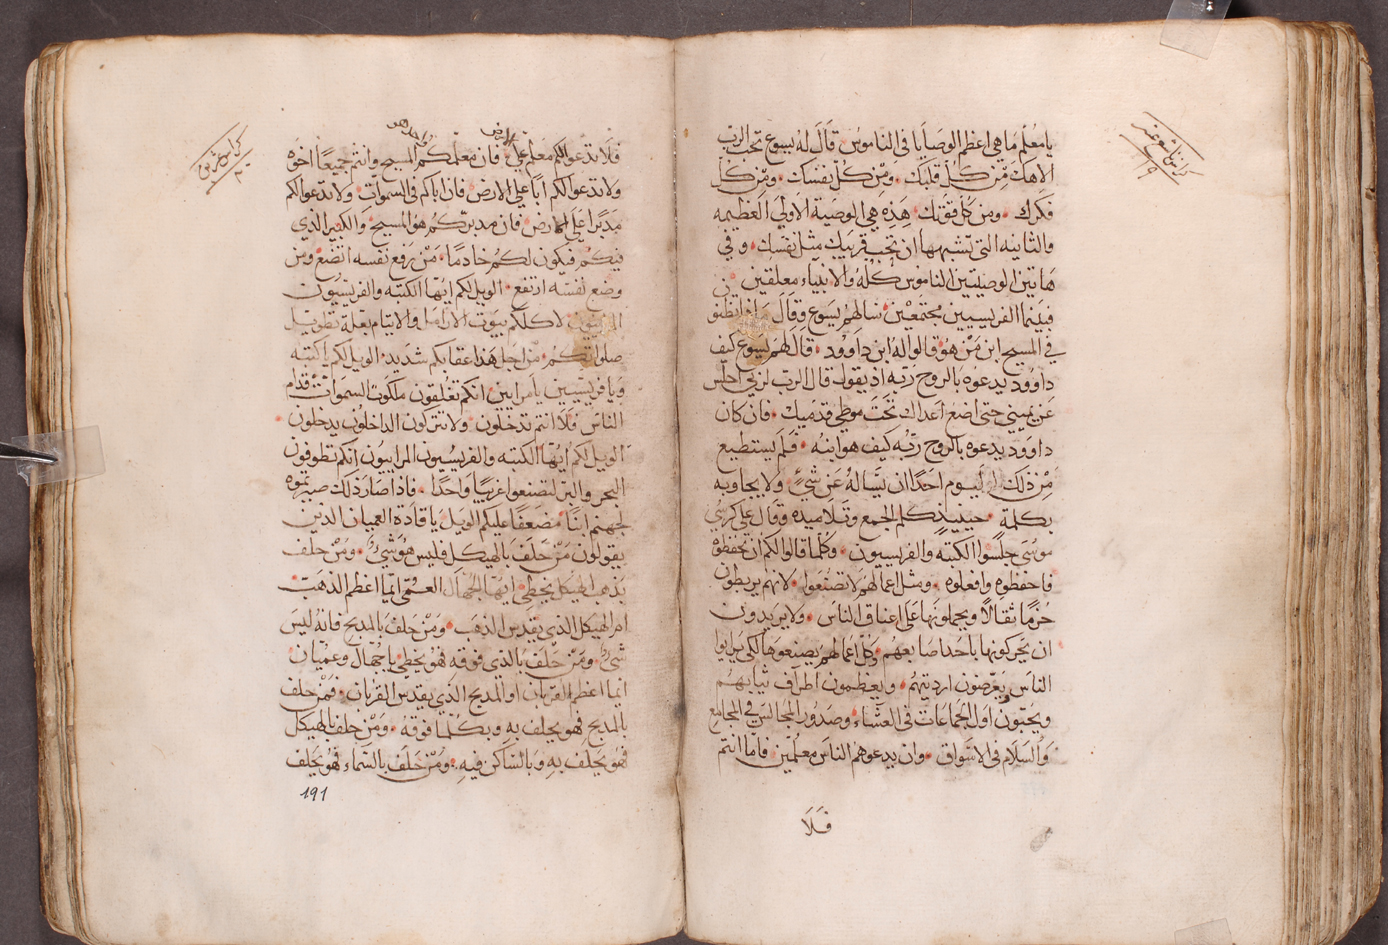 كراس تاسع عشر
١٩
يا معلم ما هي اعظم الوصايا في الناموس قال له يسوع تحب الرب
الاهك من كل قلبك ومن كل نفسك ومن كل
فكرك ومن كل قوتك هذه هي الوصية الاولي العظيمه
والثانيه التي تشبهها ان تحب قريبك مثل نفسك وفي
هاتين الوصيتين الناموس كله والانبياء معلقين
فبينما الفريسيين مجتمعين سالهم يسوع وقال ماذا تظنو
في المسيح ابن من هو قالوا له ابن داوود قال لهم يسوع كيف
داوود يدعوه بالروح ربه اذ يقول قال الرب لربي اجلس
عن يميني حتى اضع اعداك تحت موطي قدميك فان كان
داوود يدعوه بالروح ربه كيف هو ابنه فلم يستطيع
من ذلك اليوم احدا ان يساله عن شيء ولا يجاوبه
بكلمة حينيذ كلم الجمع وتلاميذه وقال على كرسي
موسى جلسوا الكتبه والفريسيون وكلما قالوا لكم ان تحفظوه
فاحفظوه وافعلوه ومثل اعمالهم لا تصنعوا لانهم يربطون
حزما ثقالا ويحملونها على اعناق الناس ولا يريدون
ان يحركونها باحد اصابعهم وكل اعمالهم يصنعوها لكي يرايوا
الناس يعرضون ارديتهم ويعظمون اطراف ثيابهم
ويحبون اول الجماعات في العشاء وصدور المجالس في المجامع
والسلام في الاسواق وان يدعوهم الناس معلمين فاما انتم
فلا
كراس عشرين
٢٠
الارض واحد هو
فلا تدعوا لكم معلم علي فان معلمكم المسيح وانتم جميعا اخوه
ولا تدعوا لكم ابا علي الارض فان اباكم في السموات ولا تدعوا لكم
مدبرا علي الارض فان مدبركم هو المسيح والكبير الذي
فيكم فيكون لكم خادما من رفع نفسه اتضع ومن
وضع نفسه ارتفع الويل لكم ايها الكتبه والفريسيون
المرايون لاكلكم بيوت الارامل والايتام بعلة تطويل
صلواتكم من اجل هذا عقابكم شديد الويل لكم يا كتبه
ويا فريسيين يا مرايين انكم تغلقون ملكوت السموات قدام
الناس فلا انتم تدخلون ولا تتركون الداخلون يدخلون
الويل لكم ايها الكتبه والفريسيون المراييون انكم تطوفون
البحر والبر لتصنعوا غريبا واحدا فاذا صار ذلك صيرتموه
لجهنم ابنا مضعفا عليكم الويل يا قادة العميان الذين
يقولون من حلف بالهيكل فليس هو شيء ومن حلف
بذهب الهيكل يخطي ايها الجهال العمي ايما اعظم الذهب
ام الهيكل الذي يقدس الذهب ومن حلف بالمدبح فانه ليس
شيء ومن حلف بالذي فوقه فهو يخطي يا جهال وعميان
ايما اعظم القربان او المدبح الذي يقدس القربان فمن حلف
بالمدبح فهو يحلف به وبكلما فوقه ومن حلف بالهيكل
فهو يحلف به وبالساكن فيه ومن حلف بالسماء فهو يحلف
191